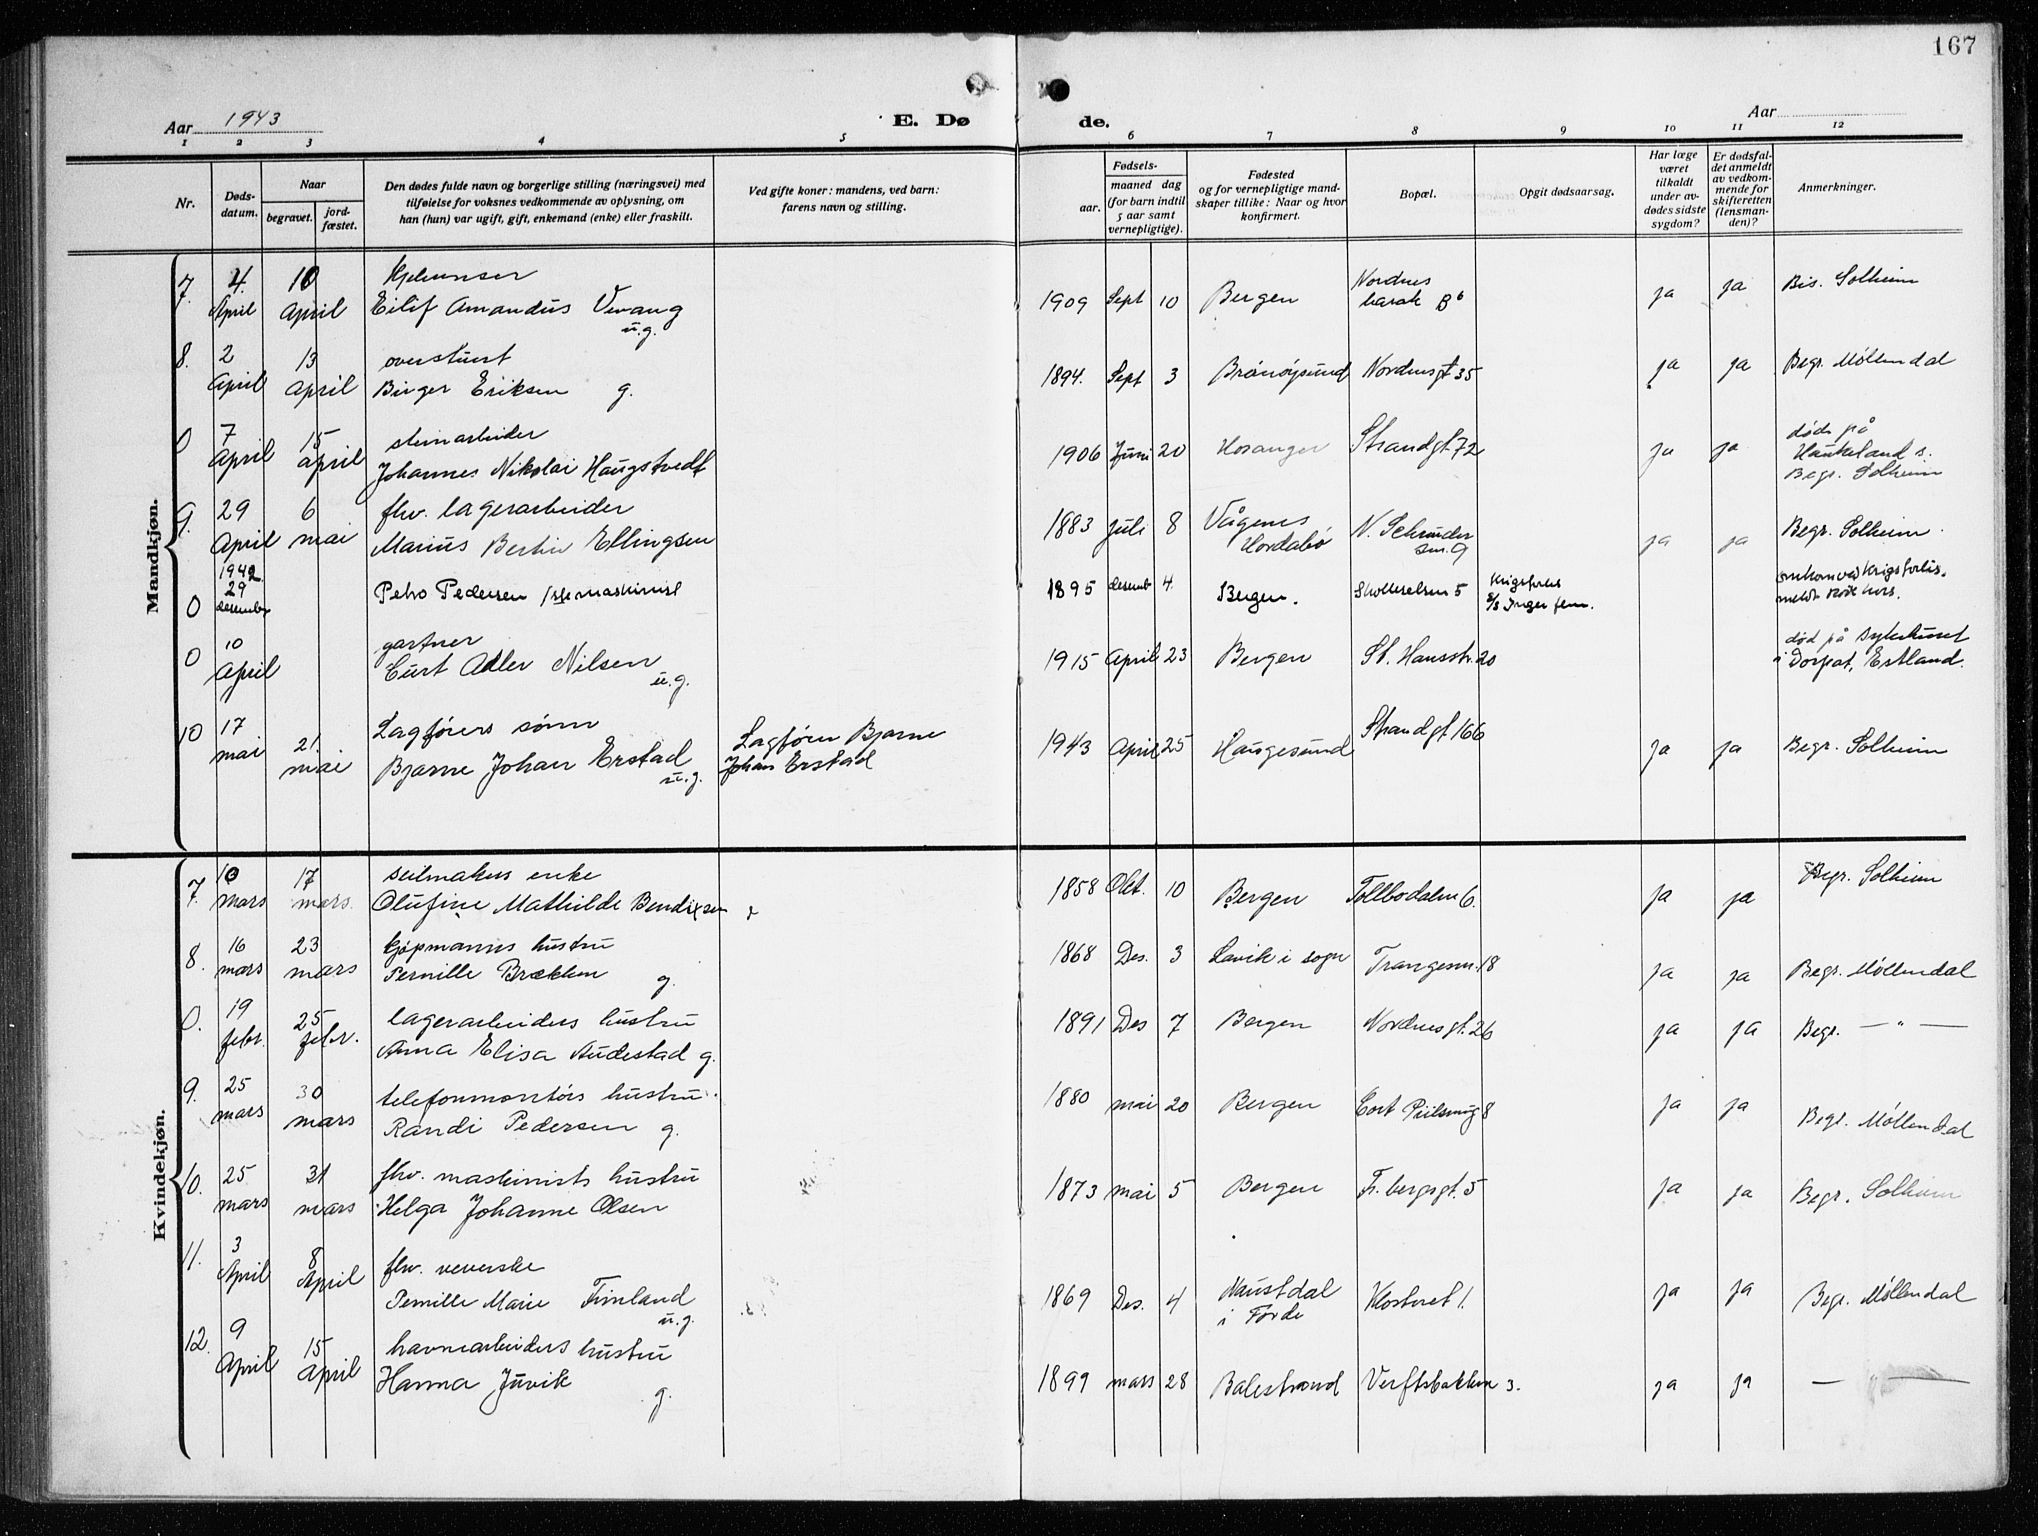 167
Aar 1943
E. Dø
de.
Aar
1 2 3 4 5 6 7 8 9 10 11 12
Nr.
Døds-
datum.
Naar
begravet.
jord-
fæstet.
Den dødes fulde navn og borgerlige stilling (næringsvei) med
tilføielse for voksnes vedkommende av oplysning, om
han (hun) var ugift, gift, enkemand (enke) eller fraskilt.
Ved gifte koner: mandens, ved barn:
farens navn og stilling.
Fødsels-
aar.
maaned dag
(for barn indtil
5 aar samt
vernepligtige).
Fødested
og for vernepligtige mand-
skaper tillike: Naar og hvor
konfirmert.
Bopæl.
Opgit dødsaarsag.
Har læge
været
tilkaldt
under av-
dødes sidste
sygdom?
Er dødsfal-
det anmeldt
av vedkom-
mende for
skifteretten
(lensman-
den)?
Anmerkninger.
Mandkjøn.
7. 4. April 10 April
Eilif Amandus Vevang
u.g.
1909 Sept 10 Bergen Nordnes
barak B6 ja ja Bis. Solheim
8. 2 April 13 April overstuert
Birger Eriksen g.
1894. Sept 3 Brønøysund Nordnesgt 35 ja ja Begr. Møllendal
0 7 April 15 April stenarbeider
Johannes Nikolai Haugstvedt
1906 Juni 20 Hosanger Strandgt. 72 ja ja død på
Haukeland s.
Begr. Solheim
9. 29 April 6 mai fhv. lagerarbeider
Marius Bertin Ellingsen
1883 juli 8 Vågenes
Hordabø N. Schrøder
sm. 9 ja ja Begr. Solheim.
0 1942 29 desember Petro Pedersen /ste maskinist
1895 desemb 4. Bergen. Skotteselsm 5 Krigsforlis
S/S Inger fem.
omkom ved Krigsforlis.
meldt røde kors.
0 10 April gartner
Curt Adler Nilsen
u.g.
1915 April 23 Bergen St. Hansstr. 20
død på sykehuset
i Dorpat, Estland.
10 17 mai 21. mai Lagførers sønn
Bjarne Johan Erstad
u.g.
Lagfører Bjarne
Johan Erstad
1943 April 25 Haugesund Strandgt 166 ja ja Begr. Solheim
Kvindekjøn.
7. 10 mars 17 mars. seilmakers enke
Olufine Mathilde Bendixsen
1858 Okt. 10 Bergen Tollbodalm 6. ja ja Begr. Solheim
8. 16 mars 23 mars kjøpmanns hustru
Pernille Brækken g.
1868 Des. 3 Lavik i sogn Trangesm. 18 ja ja Begr. Møllendal
0. 19 febr. 25 febr. lagerarbeiders hustru
Anna Elisa Audestad g.
1891 Des 7 Bergen Nordnesgt. 26 ja ja Begr. — " —
9. 25 mars 30 mars telefonmontørs hustru.
Randi Pedersen g.
1880 mai 20 Bergen Cort Piilsmug 8 ja ja Begr. Møllendal
10. 25 mars 31 mars fhv. maskinists hustru
Helga Johanne Olsen
1873 mai 5 Bergen Fr. bergsgt. 5 ja ja Begr. Solheim
11. 3 April 8 April fhv. veverske
Pernille Marie Fimland
u.g.
1869 Des. 4 Naustdal
i Førde Klosteret 1. ja ja Begr. Møllendal
12. 9 April 15 April havnearbeiders hustru
Hanna Juvik g.
1899 mars 28 Balestrand Verftsbakken 3. ja ja — " —